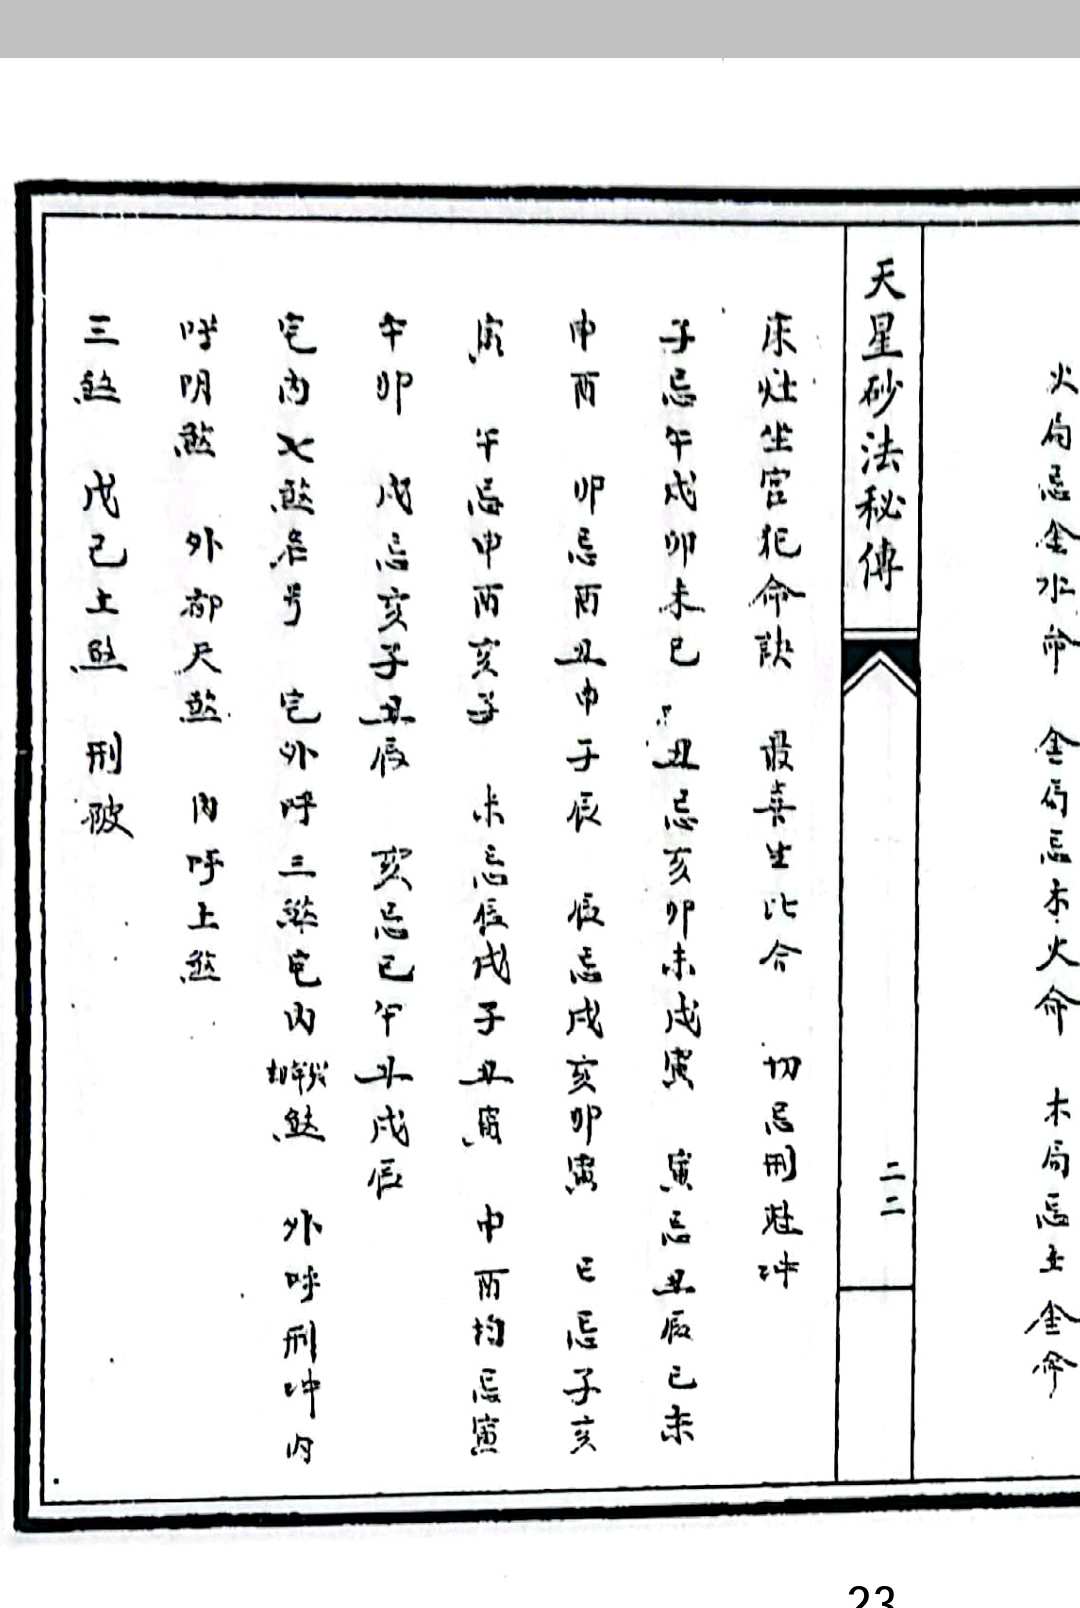 火局忌金水命　金局忌木火命　木局忌土金命
天星砂法秘傳
二二
床灶坐宫犯命訣　最喜生比合　切忌刑煞冲
子忌午戌卯未巳　丑忌亥卯未戌寅　寅忌丑辰巳未
申酉　卯忌酉丑申子辰　辰忌戌亥卯寅　巳忌子亥
寅　午忌申酉亥子　未忌辰戌子丑寅　申酉均忌寅
午卯　戌忌亥子丑辰　亥忌巳午丑戌辰
宅内七煞名号　宅外呼三煞宅内煞　外呼刑冲内
呼明煞　外都天煞　内呼土煞
三煞　戊己土煞　刑破
23